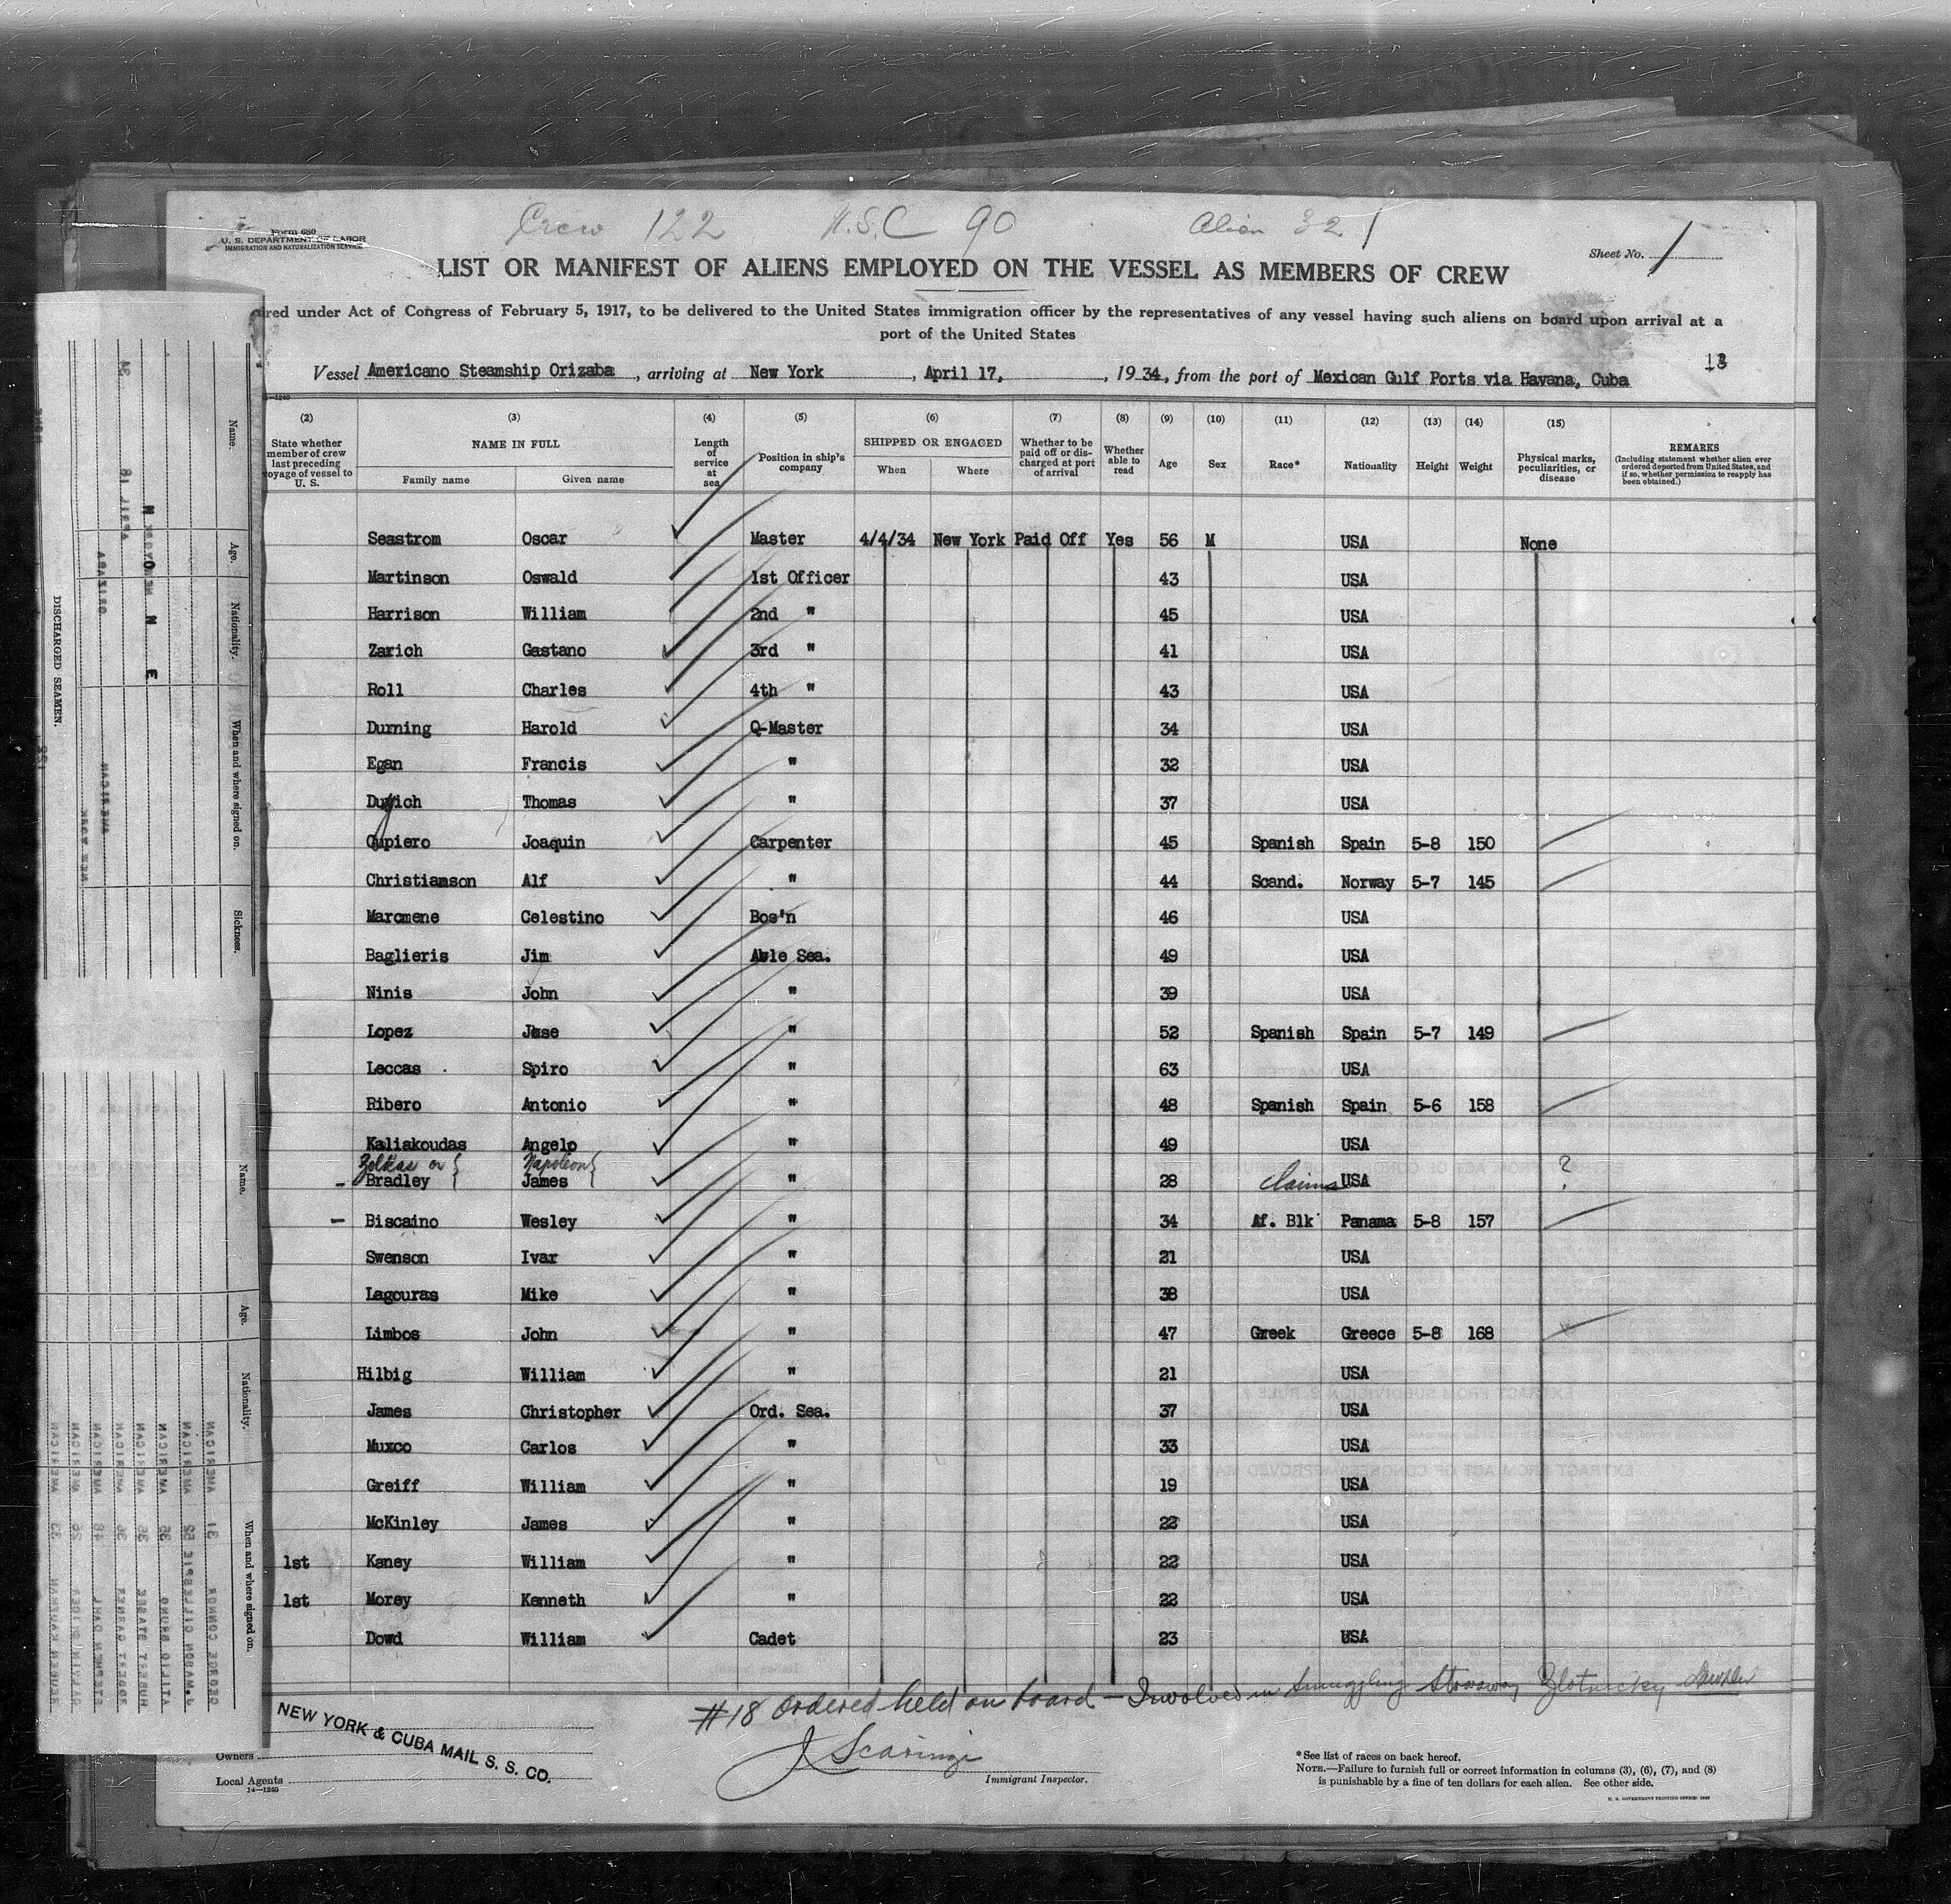 Crew 122 U.S.C 90 Alien 32 1
Form 680
U. S. DEPARTMENT OF LABOR
IMMIGRATION AND NATURALIZATION SERVICE
Sheet No. 1
LIST OR MANIFEST OF ALIENS EMPLOYED ON THE VESSEL AS MEMBERS OF CREW
red under Act of Congress of February 5, 1917, to be delivered to the United States immigration officer by the representatives of any vessel having such aliens on board upon arrival at a
port of the United States
13
Vessel Americano Steamship Orizaba, arriving at New York, April 17, 1934, from the port of Mexican Gulf Ports via Havana, Cuba
(2) (3) (4) (5) (6) (7) (8) (9) (10) (11) (12) (13) (14) (15)
State whether member of crew last preceding voyage of vessel to U. S.
NAME IN FULL
Family name Given name
Length of service at sea
Position in ship's company
SHIPPED OR ENGAGED
When Where
Whether to be paid off or discharged at port of arrival
Whether able to read
Age Sex Race* Nationality Height Weight
Physical marks, peculiarities, or disease
REMARKS
(Including statement whether alien ever ordered deported from United States, and if so, whether permission to reapply has been obtained.)
Seastrom Oscar Master 4/4/34 New York Paid Off Yes 56 M USA None
Martinson Oswald 1st Officer 43 USA
Harrison William 2nd " 45 USA
Zarich Gastano 3rd " 41 USA
Roll Charles 4th " 43 USA
Durning Harold Q-Master 34 USA
Egan Francis " 32 USA
Thomas " 37 USA
Joaquin Carpenter 45 Spanish Spain 5-8 150
Christiamson Alf " 44 Scand. Norway 5-7 145
Maromene Celestino Bos'n 46 USA
Baglieris Jim Able Sea. 49 USA
Ninis John " 39 USA
Lopez Jose " 52 Spanish Spain 5-7 149
Leccas Spiro " 63 USA
Ribero Antonio " 48 Spanish Spain 5-6 158
Kaliakoudas Angelo " 49 USA
Zolkas or { Napoleon {
- Bradley James " 28 Claims USA ?
- Biscaino Wesley " 34 Af. Blk Panama 5-8 157
Swenson Ivar " 21 USA
Lagouras Mike " 38 USA
Limbos John " 47 Greek Greece 5-8 168
Hilbig William " 21 USA
James Christopher Ord. Sea. 37 USA
Muxco Carlos " 33 USA
Greiff William " 19 USA
McKinley James " 22 USA
1st Kaney William " 22 USA
1st Morey Kenneth " 22 USA
Dowd William Cadet 23 USA
#18 ordered held on board - Involved in Smuggling Stowaway Zlotnicky
J Scaringi
Immigrant Inspector.
NEW YORK & CUBA MAIL S. S. CO.
Owners
Local Agents
14—1240
*See list of races on back hereof.
NOTE.—Failure to furnish full or correct information in columns (3), (6), (7), and (8)
is punishable by a fine of ten dollars for each alien. See other side.
U. S. GOVERNMENT PRINTING OFFICE: 1933
DISCHARGED SEAMEN.
Name. Age. Nationality. When and where signed on. Sickness.
N O N E
Name. Age. Nationality. When and where signed on.